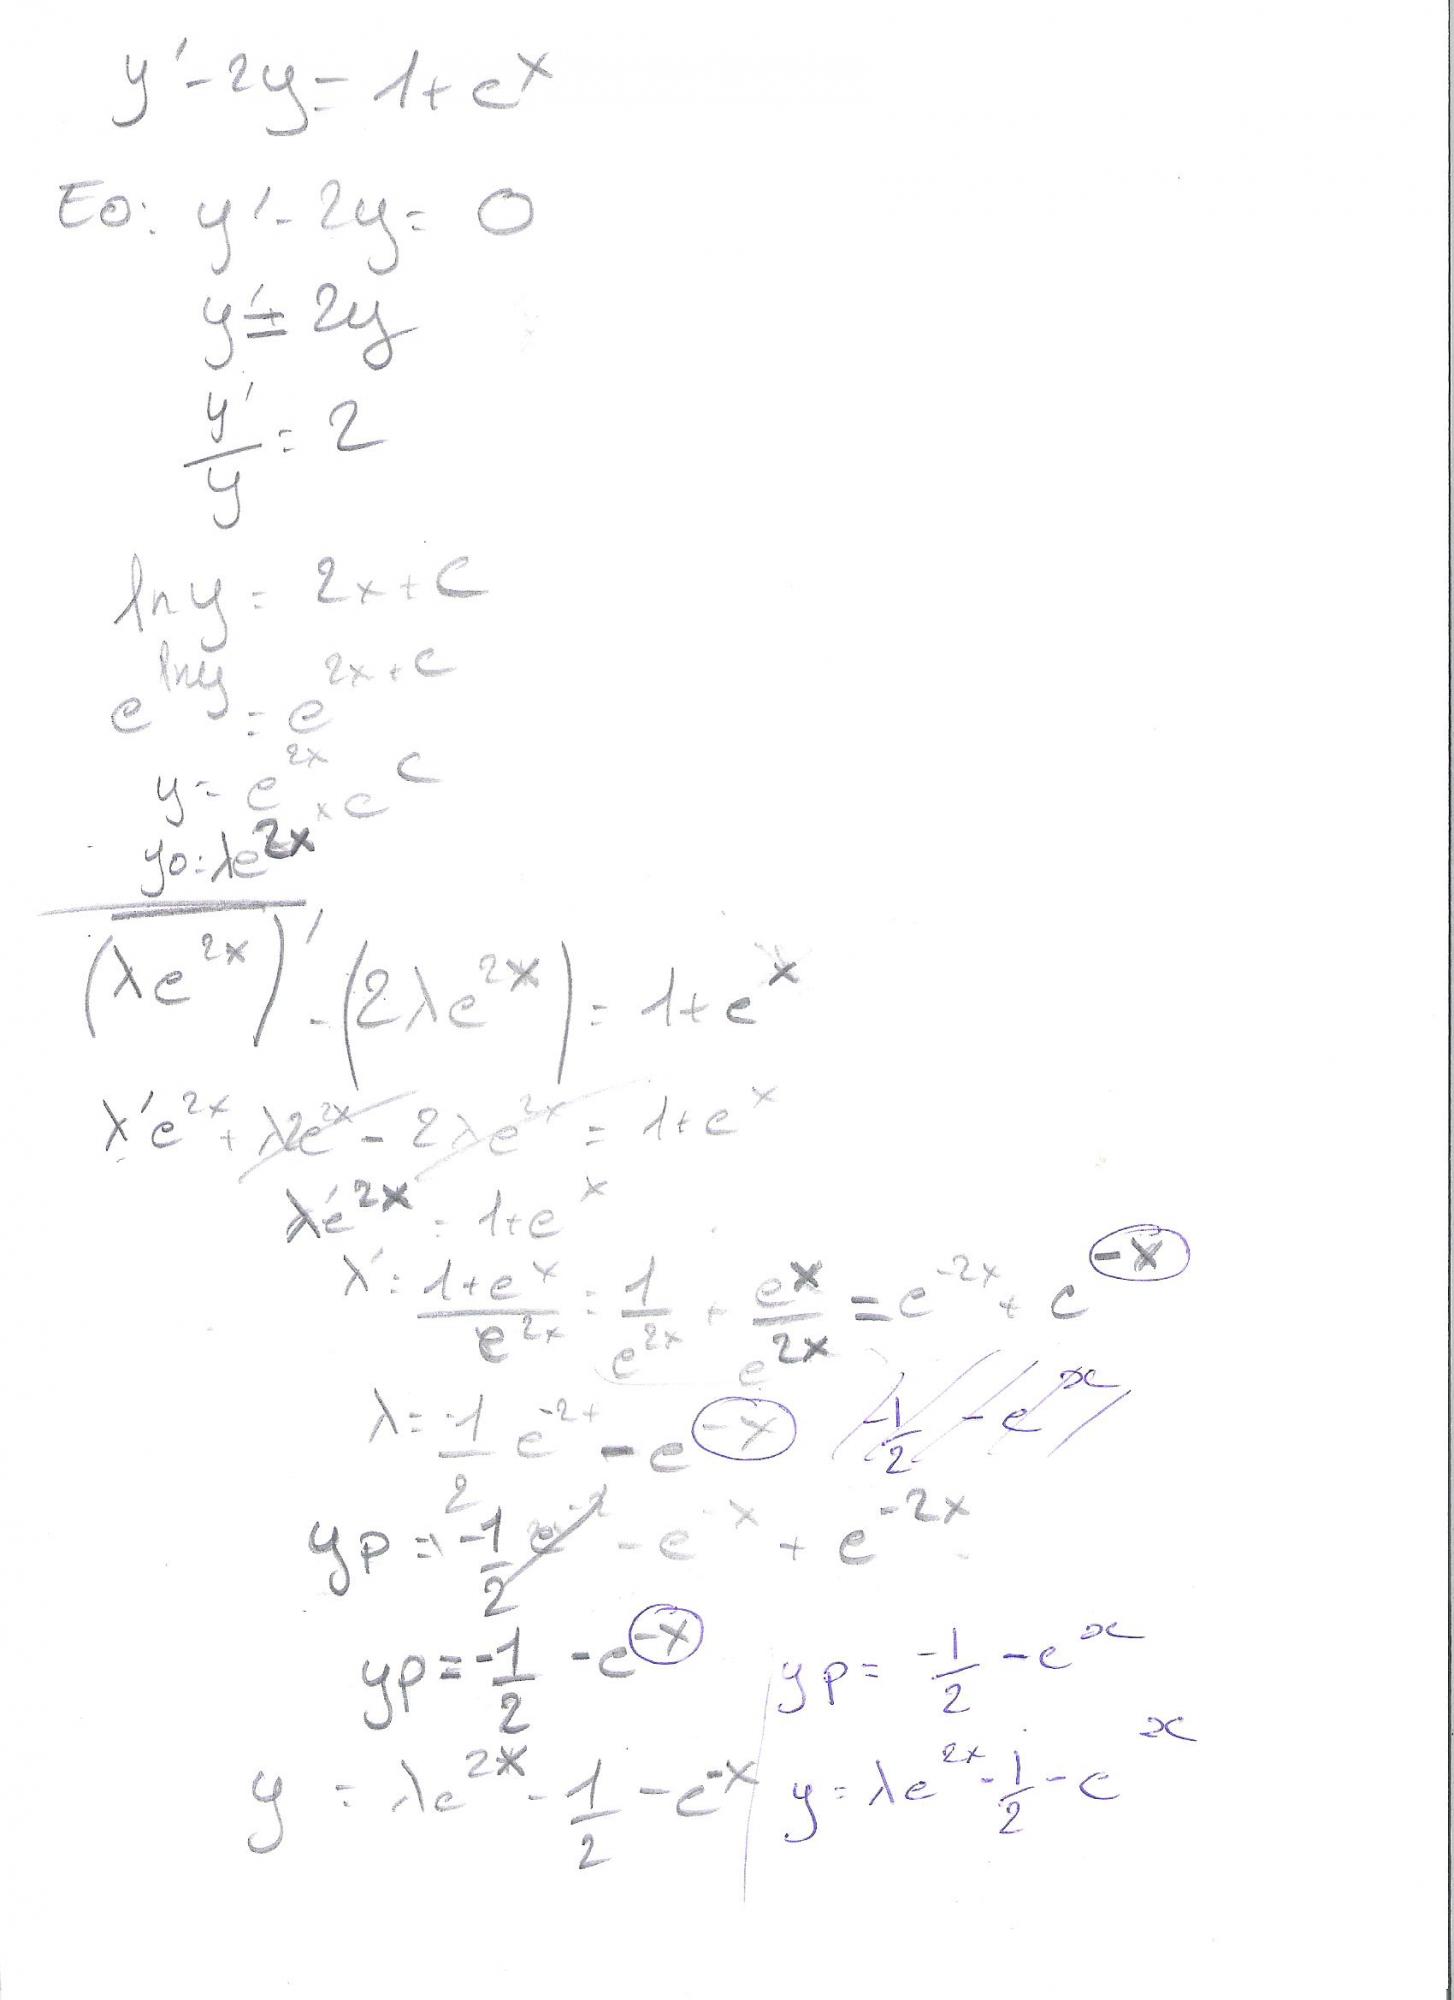 y' - 2y = 1 + e^x
E0: y' - 2y = 0
y' = 2y
y'/y = 2
ln y = 2x + c
e^(ln y) = e^(2x + c)
y = e^(2x) × e^c
y0 = λe^(2x)
(λe^(2x))' - (2λe^(2x)) = 1 + e^x
λ'e^(2x) + λ2e^(2x) - 2λe^(2x) = 1 + e^x
λ'e^(2x) = 1 + e^x
λ' = (1 + e^x)/e^(2x) = 1/e^(2x) + e^x/e^(2x) = e^(-2x) + e^(-x)
λ = -1/2 e^(-2x) - e^(-x) -1/2 - e^x
yp = -1/2 e^(-2) - e^(-x) + e^(-2x)
yp = -1/2 - e^(-x) yp = -1/2 - e^x
y = λe^(2x) - 1/2 - e^(-x) y = λe^(2x) - 1/2 - e^x